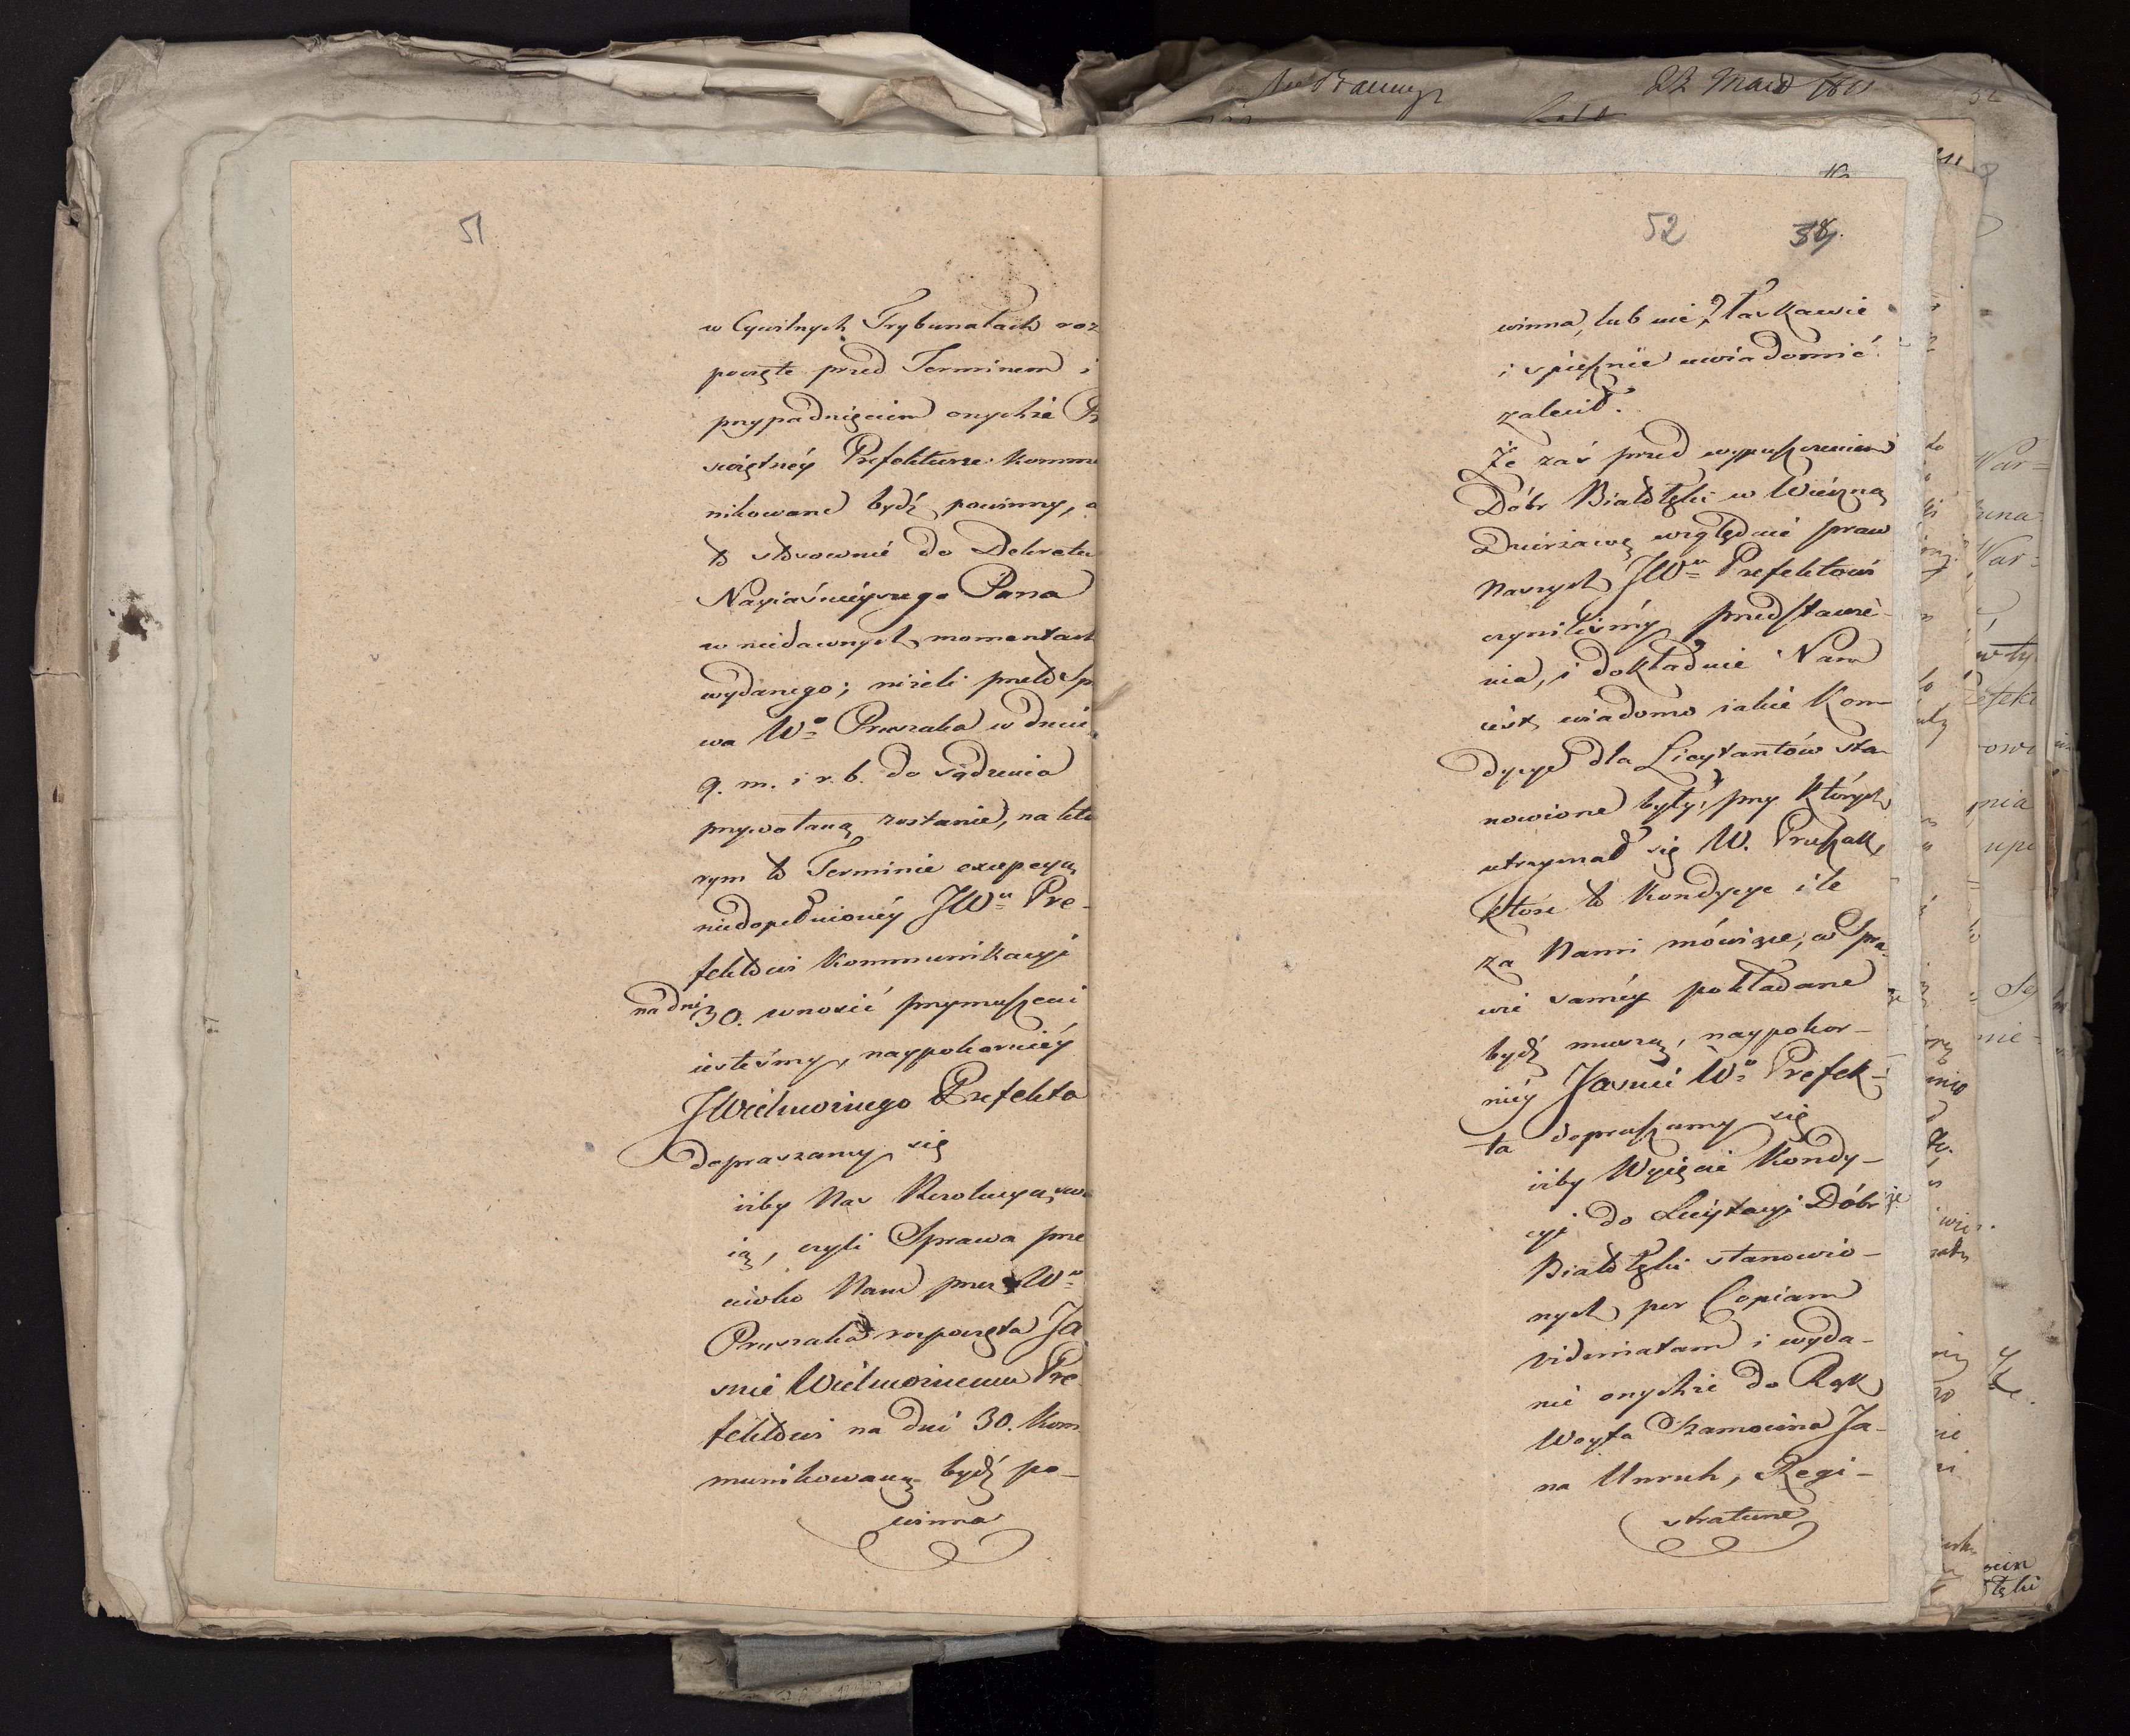 51
w Cywilnych Trybunałach roz
poczęte przed Terminem i
przypadnięciem onychże
swiętnéy Prefekturze kommu
nikowane bydź powinny,
to stosownie do Dekretu
Nayiaśnieyszego Pana
w niedawnych momentach
wydanego; niżeli przeto Sp
wa Wo Pruszaka w dniu
9. m. i r. b. do sądzenia
przywołaną zostanie, na któ
rym to Terminie excepcyą
niedopełnionéy JWu Pre-
fektowi Kommunikacyi
na dni 30. wnosić przymuszeni
iesteśmy, naypokorniéy
JWielmożnego Prefekta
dopraszamy się
iżby Nas Rezolucyą swo
ią, czyli Sprawa prze
ciwko Nam przez Wo
Pruszaka rozpoczęta Ja
snie Wielmożnemu Pre
fektowi na dni 30. kom
munikowaną bydź po-
winna
52 38.
winna, lub nie? łaskawie
i spiesznie uwiadomić
zalecił.
Że zaś przed wypuszczeniem
Dóbr Białołęki w Wieczną
Dzierżawę względnie praw
Naszych JWu Prefektowi
czyniliśmy przedstawie-
nia, i dokładnie Nam
iest wiadomo iakie Kon-
dycye dla Licytantów sta-
nowione były, przy których
utrzymał się W. Pruszak,
które to Kondycye ile
za Nami mówiące, w Spra-
wie saméy pokładane
bydź muszą, naypokor-
niéy Jasnie Wo Prefek-
ta dopraszamy się
iżby Wyięcie Kondy-
cyi do Licytacyi Dóbr
Białołęki stanowio-
nych per Copiam
vidimatam i wyda-
nie onychże do Rąk
Woyta Szamocina Ja-
na Unruh, Regi-
straturze